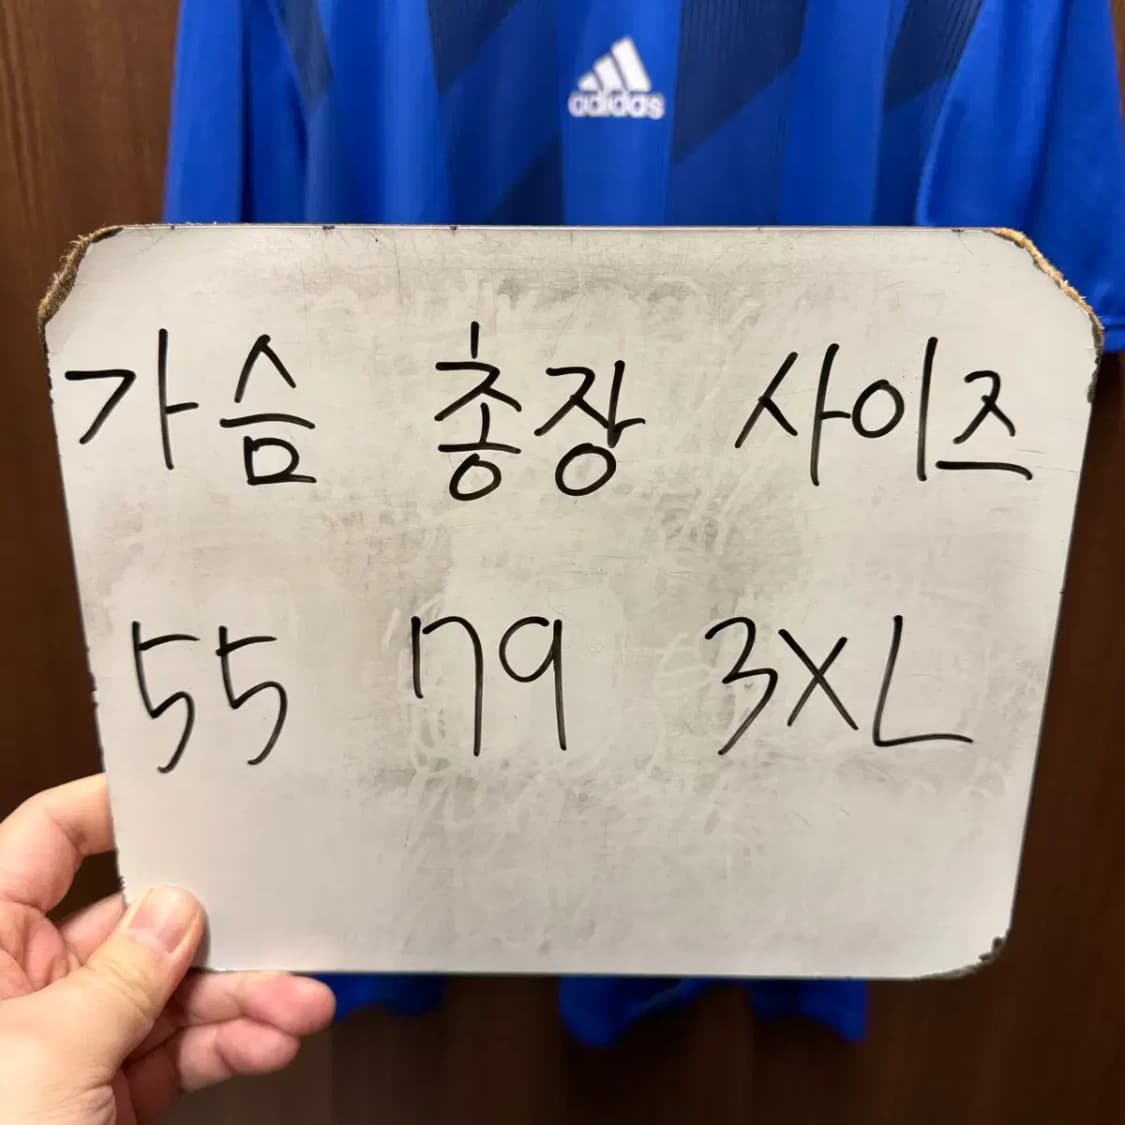 adidas
가슴 총장 사이즈
55 79 3XL